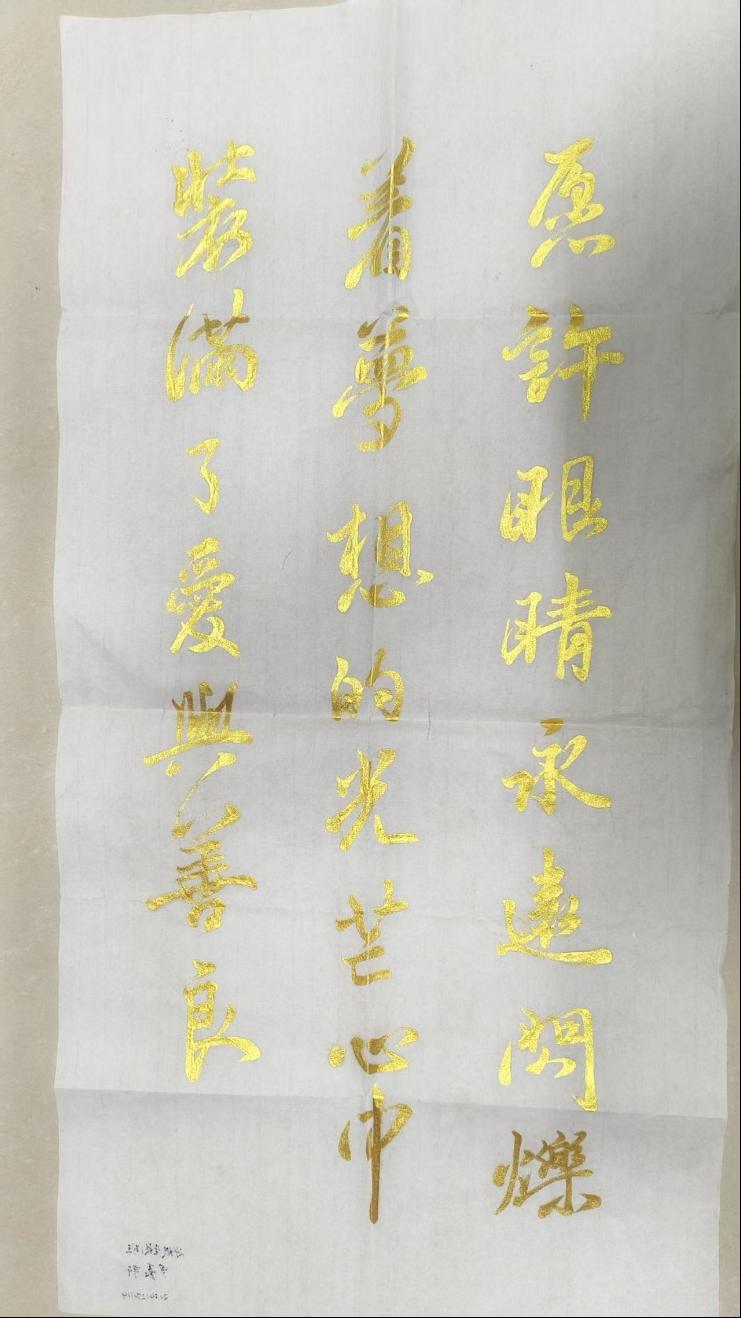 愿許眼睛永遠閃爍
着夢想的光芒心中
裝滿了愛與善良